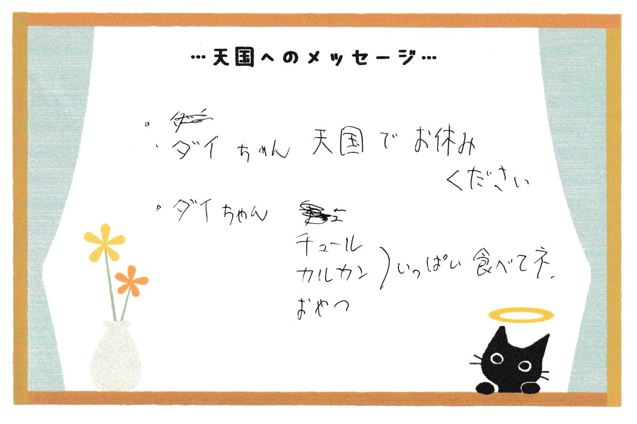 …天国へのメッセージ…
・ダイちゃん 天国でお休み
ください
・ダイちゃん
チュール
カルカン ) いっぱい 食べてネ.
おやつ